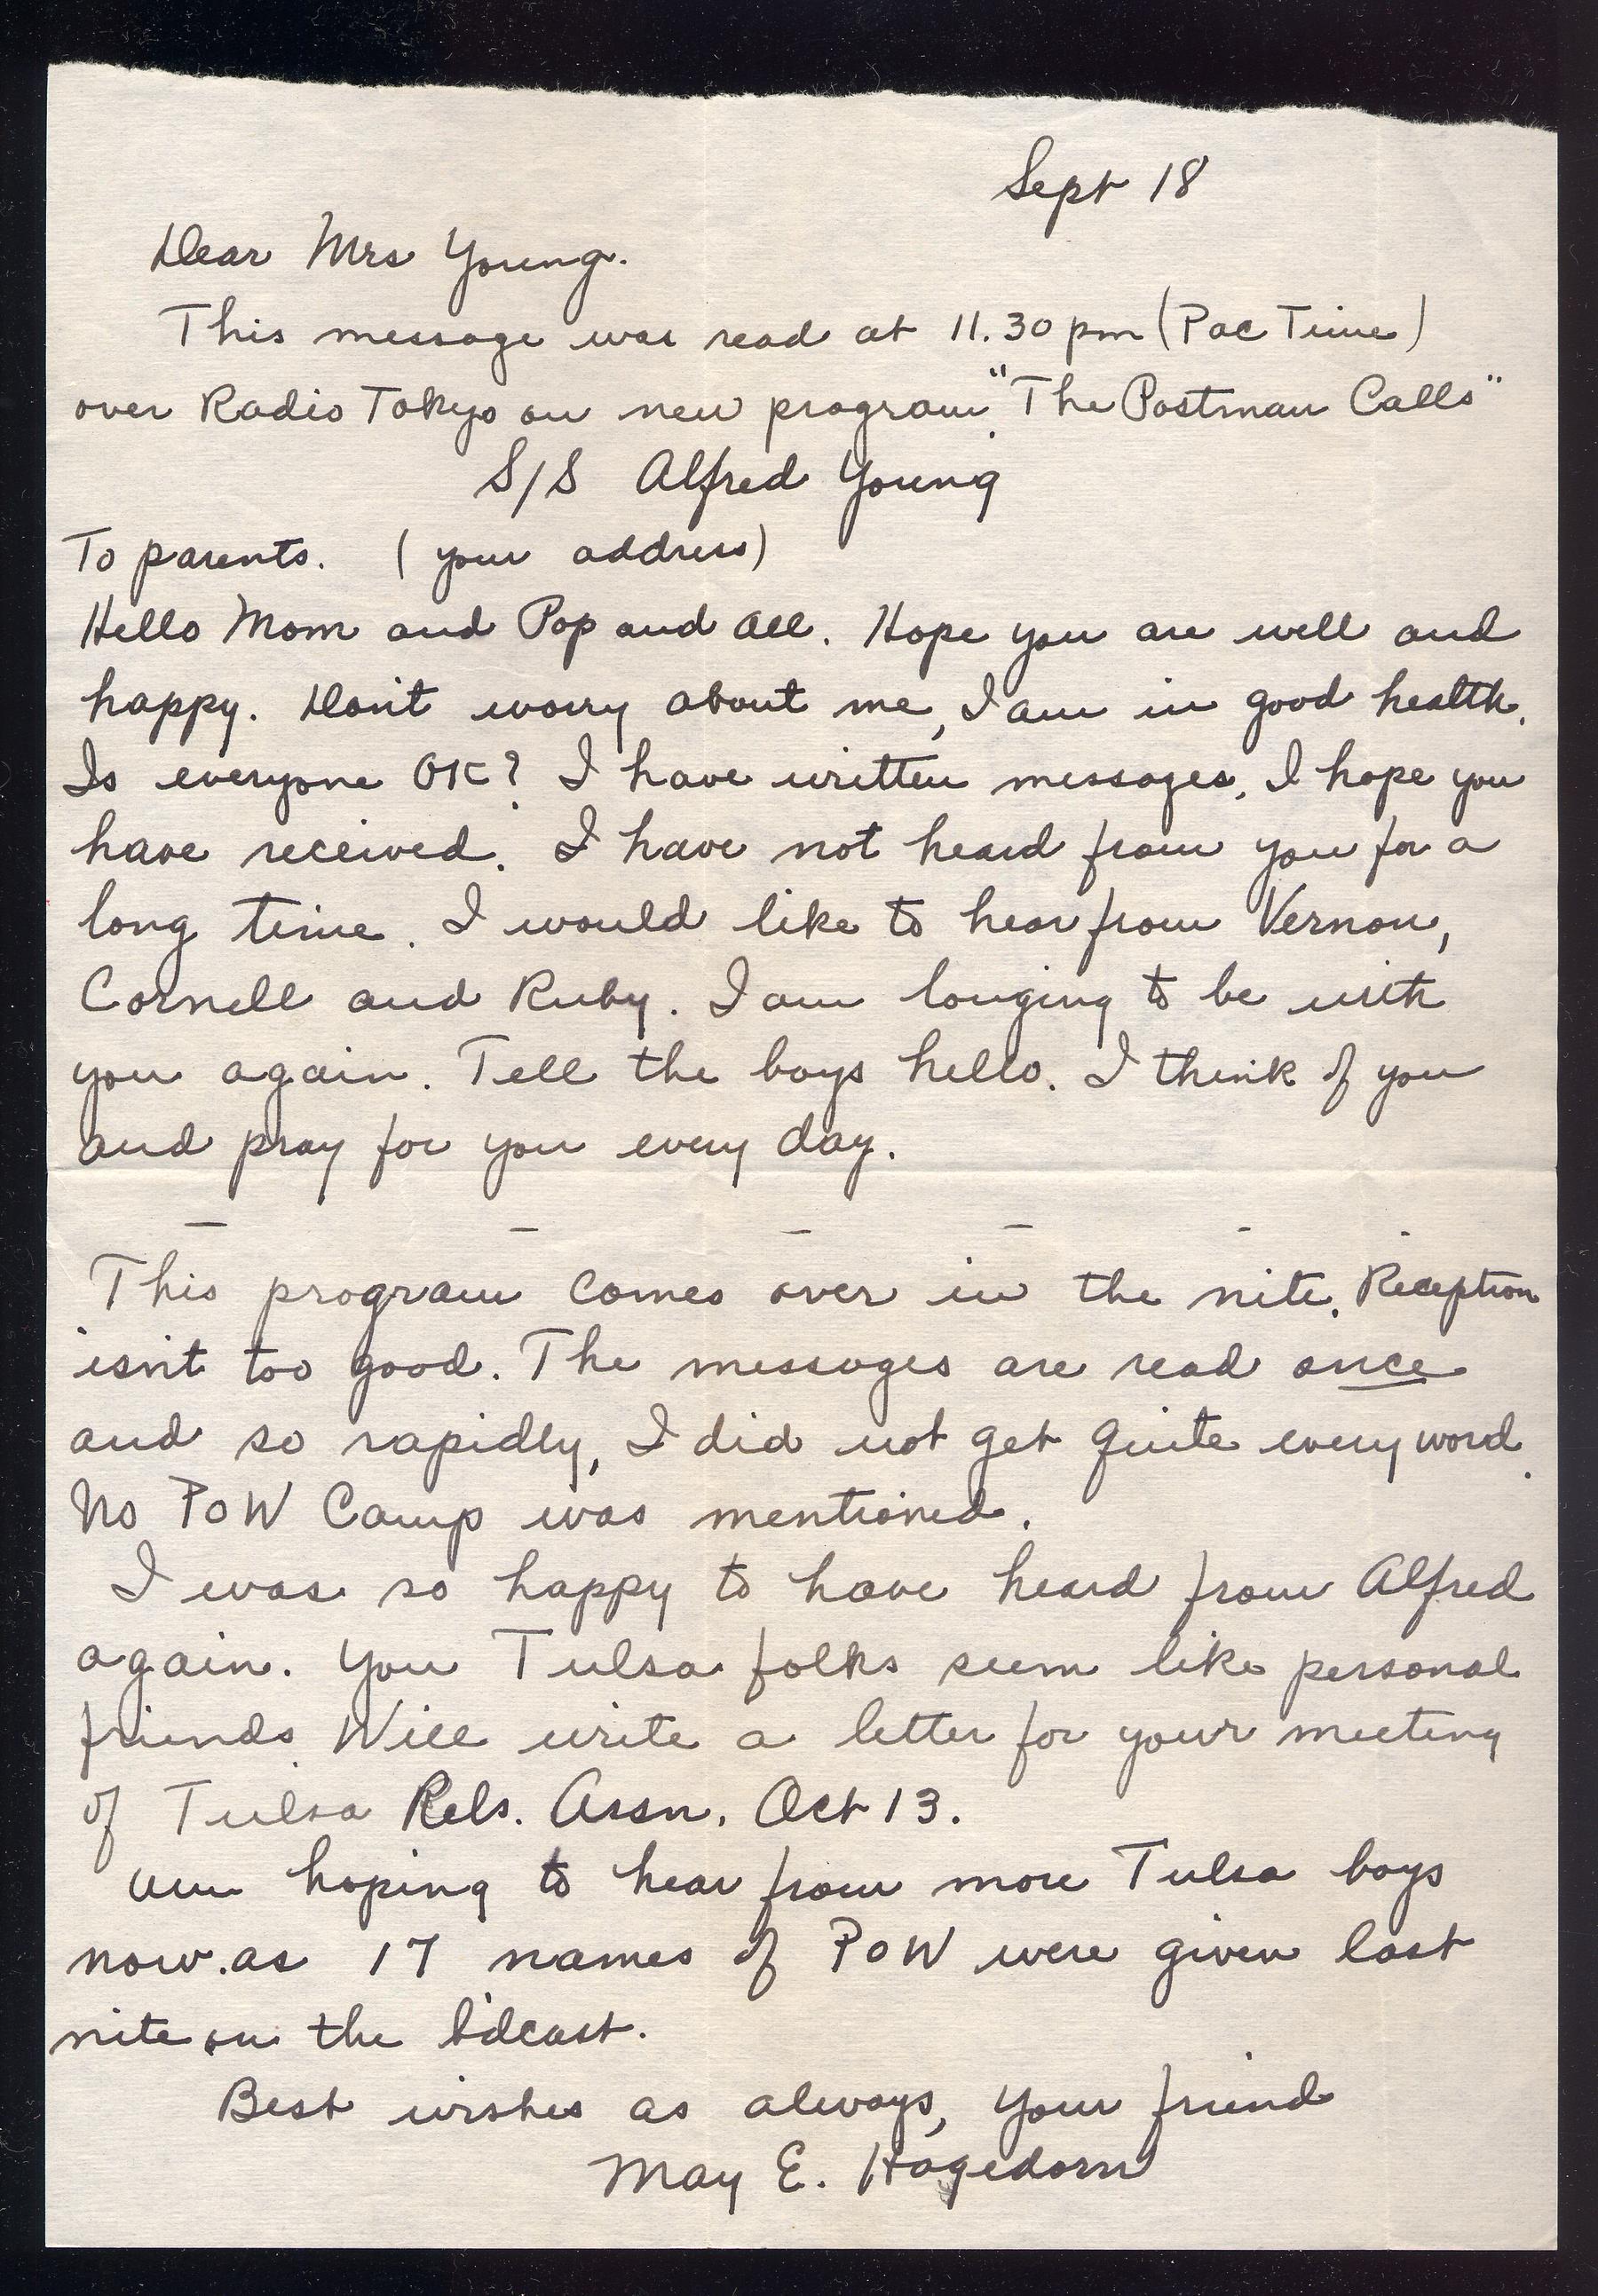 Sept 18
Dear Mrs Young.
This message was read at 11.30 pm (Pac Time)
over Radio Tokyo on new program "The Postman Calls"
S/S Alfred Young
To parents. (your address)
Hello Mom and Pop and all. Hope you are well and
happy. Don't worry about me, I am in good health.
Is everyone OK? I have written messages, I hope you
have received. I have not heard from you for a
long time. I would like to hear from Vernon,
Cornell and Ruby. I am longing to be with
you again. Tell the boys hello. I think of you
and pray for you every day.
— — — — — —
This program comes over in the nite. Reception
isn't too good. The messages are read once
and so rapidly, I did not get quite every word.
No PoW Camp was mentioned.
I was so happy to have heard from Alfred
again. You Tulsa folks seem like personal
friends. Will write a letter for your meeting
of Tulsa Rels. Assn. Oct 13.
Am hoping to hear from more Tulsa boys
now. as 17 names of PoW were given last
nite on the b'dcast.
Best wishes as always, your friend
May E. Hagedorn